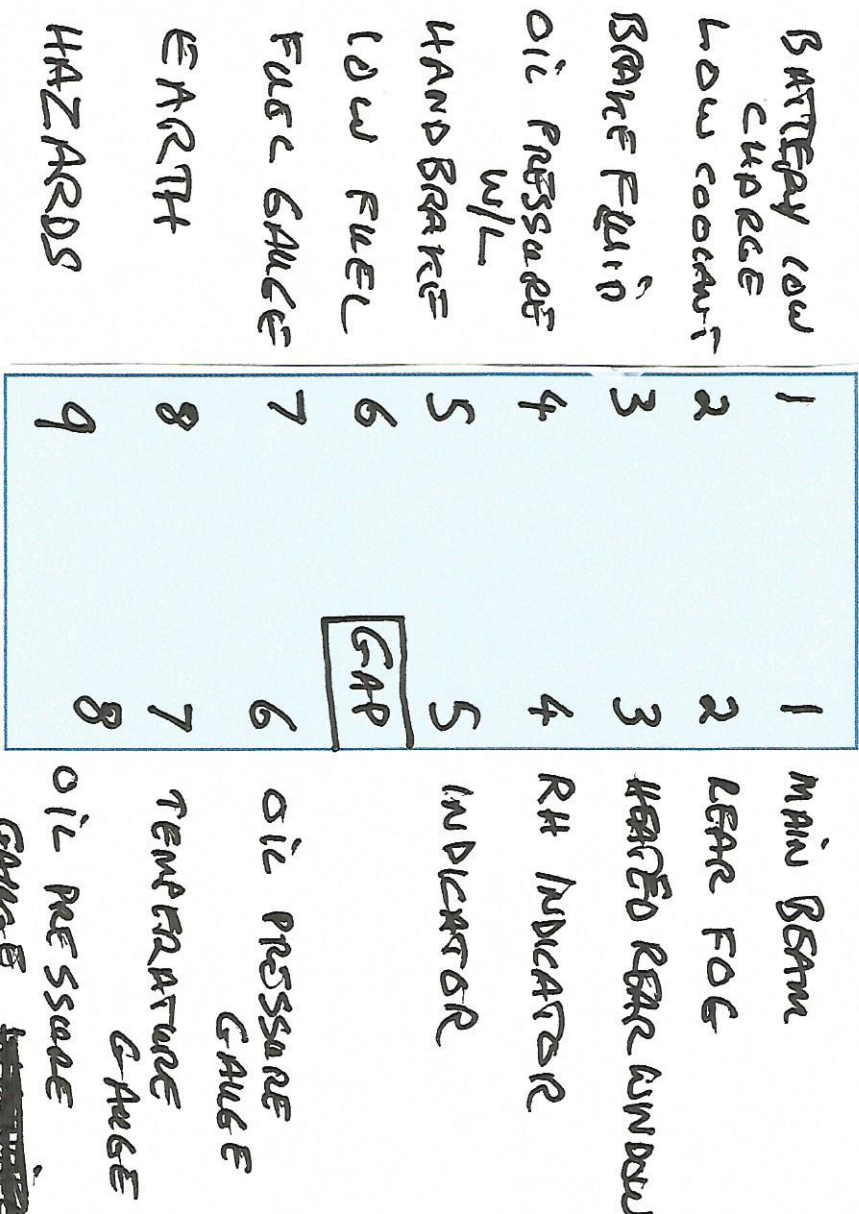 BATTERY LOW
CHARGE
LOW COOLANT
BRAKE FLUID
OIL PRESSURE
W/L
HANDBRAKE
LOW FUEL
FUEL GAUGE
EARTH
HAZARDS
1
2
3
4
5
6
7
8
9
1
2
3
4
5
GAP
6
7
8
MAIN BEAM
REAR FOG
HEATED REAR WINDOW
RH INDICATOR
INDICATOR
OIL PRESSURE
GAUGE
TEMPERATURE
GAUGE
OIL PRESSURE
GAUGE